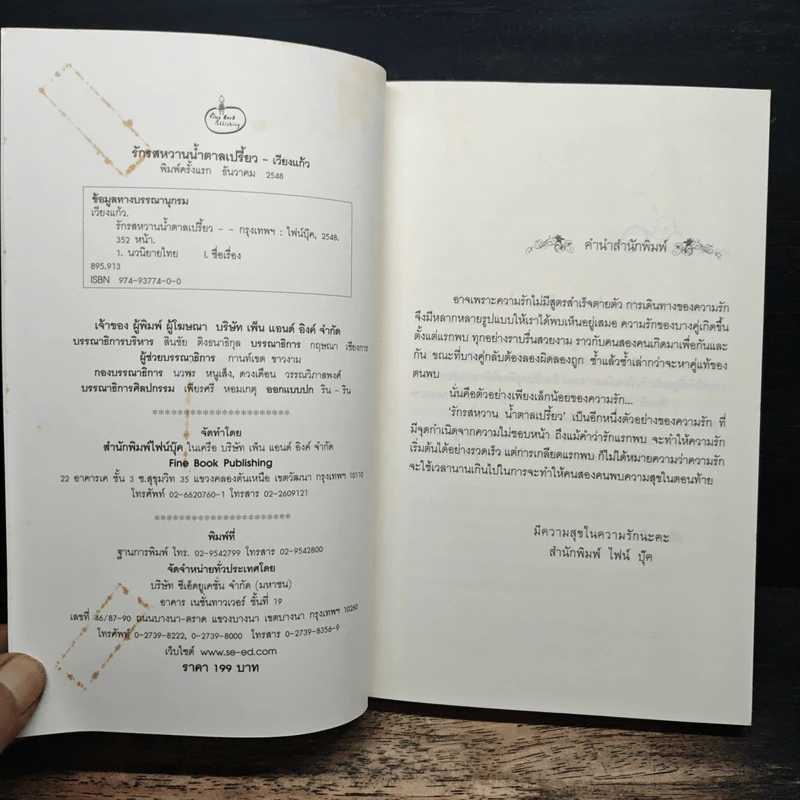 Fine Book
Publishing
รักรสหวานน้ำตาลเปรี้ยว - เวียงแก้ว
พิมพ์ครั้งแรก ธันวาคม 2548
ข้อมูลทางบรรณานุกรม
เวียงแก้ว.
รักรสหวานน้ำตาลเปรี้ยว - - กรุงเทพฯ : ไฟน์บุ๊ค, 2548.
352 หน้า.
1. นวนิยายไทย I. ชื่อเรื่อง
895.913
ISBN 974-93774-0-0
เจ้าของ ผู้พิมพ์ ผู้โฆษณา บริษัท เพ็น แอนด์ อิงค์ จำกัด
บรรณาธิการบริหาร สินชัย ติงธนาธิกุล บรรณาธิการ กฤษณา เรียงการ
ผู้ช่วยบรรณาธิการ กานท์เขต ขาวงาม
กองบรรณาธิการ นวพร หนูเส็ง, ดวงเดือน วรรณวิภาสพงศ์
บรรณาธิการศิลปกรรม เพียรศรี หอมเกตุ ออกแบบปก ริน - ริน
**********************
จัดทำโดย
สำนักพิมพ์ไฟน์บุ๊ค ในเครือ บริษัท เพ็น แอนด์ อิงค์ จำกัด
Fine Book Publishing
22 อาคารเค ชั้น 3 ซ.สุขุมวิท 35 แขวงคลองตันเหนือ เขตวัฒนา กรุงเทพฯ 10110
โทรศัพท์ 02-6620760-1 โทรสาร 02-2609121
**********************
พิมพ์ที่
ฐานการพิมพ์ โทร. 02-9542799 โทรสาร 02-9542800
จัดจำหน่ายทั่วประเทศโดย
บริษัท ซีเอ็ดยูเคชั่น จำกัด (มหาชน)
อาคาร เนชั่นทาวเวอร์ ชั้นที่ 19
เลขที่ 46/87-90 ถนนบางนา-ตราด แขวงบางนา เขตบางนา กรุงเทพฯ 10260
โทรศัพท์ 0-2739-8222, 0-2739-8000 โทรสาร 0-2739-8356-9
เว็บไซต์ www.se-ed.com
ราคา 199 บาท
คำนำสำนักพิมพ์
อาจเพราะความรักไม่มีสูตรสำเร็จตายตัว การเดินทางของความรัก
จึงมีหลากหลายรูปแบบให้เราได้พบเห็นอยู่เสมอ ความรักของบางคู่เกิดขึ้น
ตั้งแต่แรกพบ ทุกอย่างราบรื่นสวยงาม ราวกับคนสองคนเกิดมาเพื่อกันและ
กัน ขณะที่บางคู่กลับต้องลองผิดลองถูก ช้ำแล้วช้ำเล่ากว่าจะหาคู่แท้ของ
ตนพบ
นั่นคือตัวอย่างเพียงเล็กน้อยของความรัก...
'รักรสหวาน น้ำตาลเปรี้ยว' เป็นอีกหนึ่งตัวอย่างของความรัก ที่
มีจุดกำเนิดจากความไม่ชอบหน้า ถึงแม้คำว่ารักแรกพบ จะทำให้ความรัก
เริ่มต้นได้อย่างรวดเร็ว แต่การเกลียดแรกพบ ก็ไม่ได้หมายความว่าความรัก
จะใช้เวลานานเกินไปในการจะทำให้คนสองคนพบความสุขในตอนท้าย
มีความสุขในความรักนะคะ
สำนักพิมพ์ ไฟน์ บุ๊ค